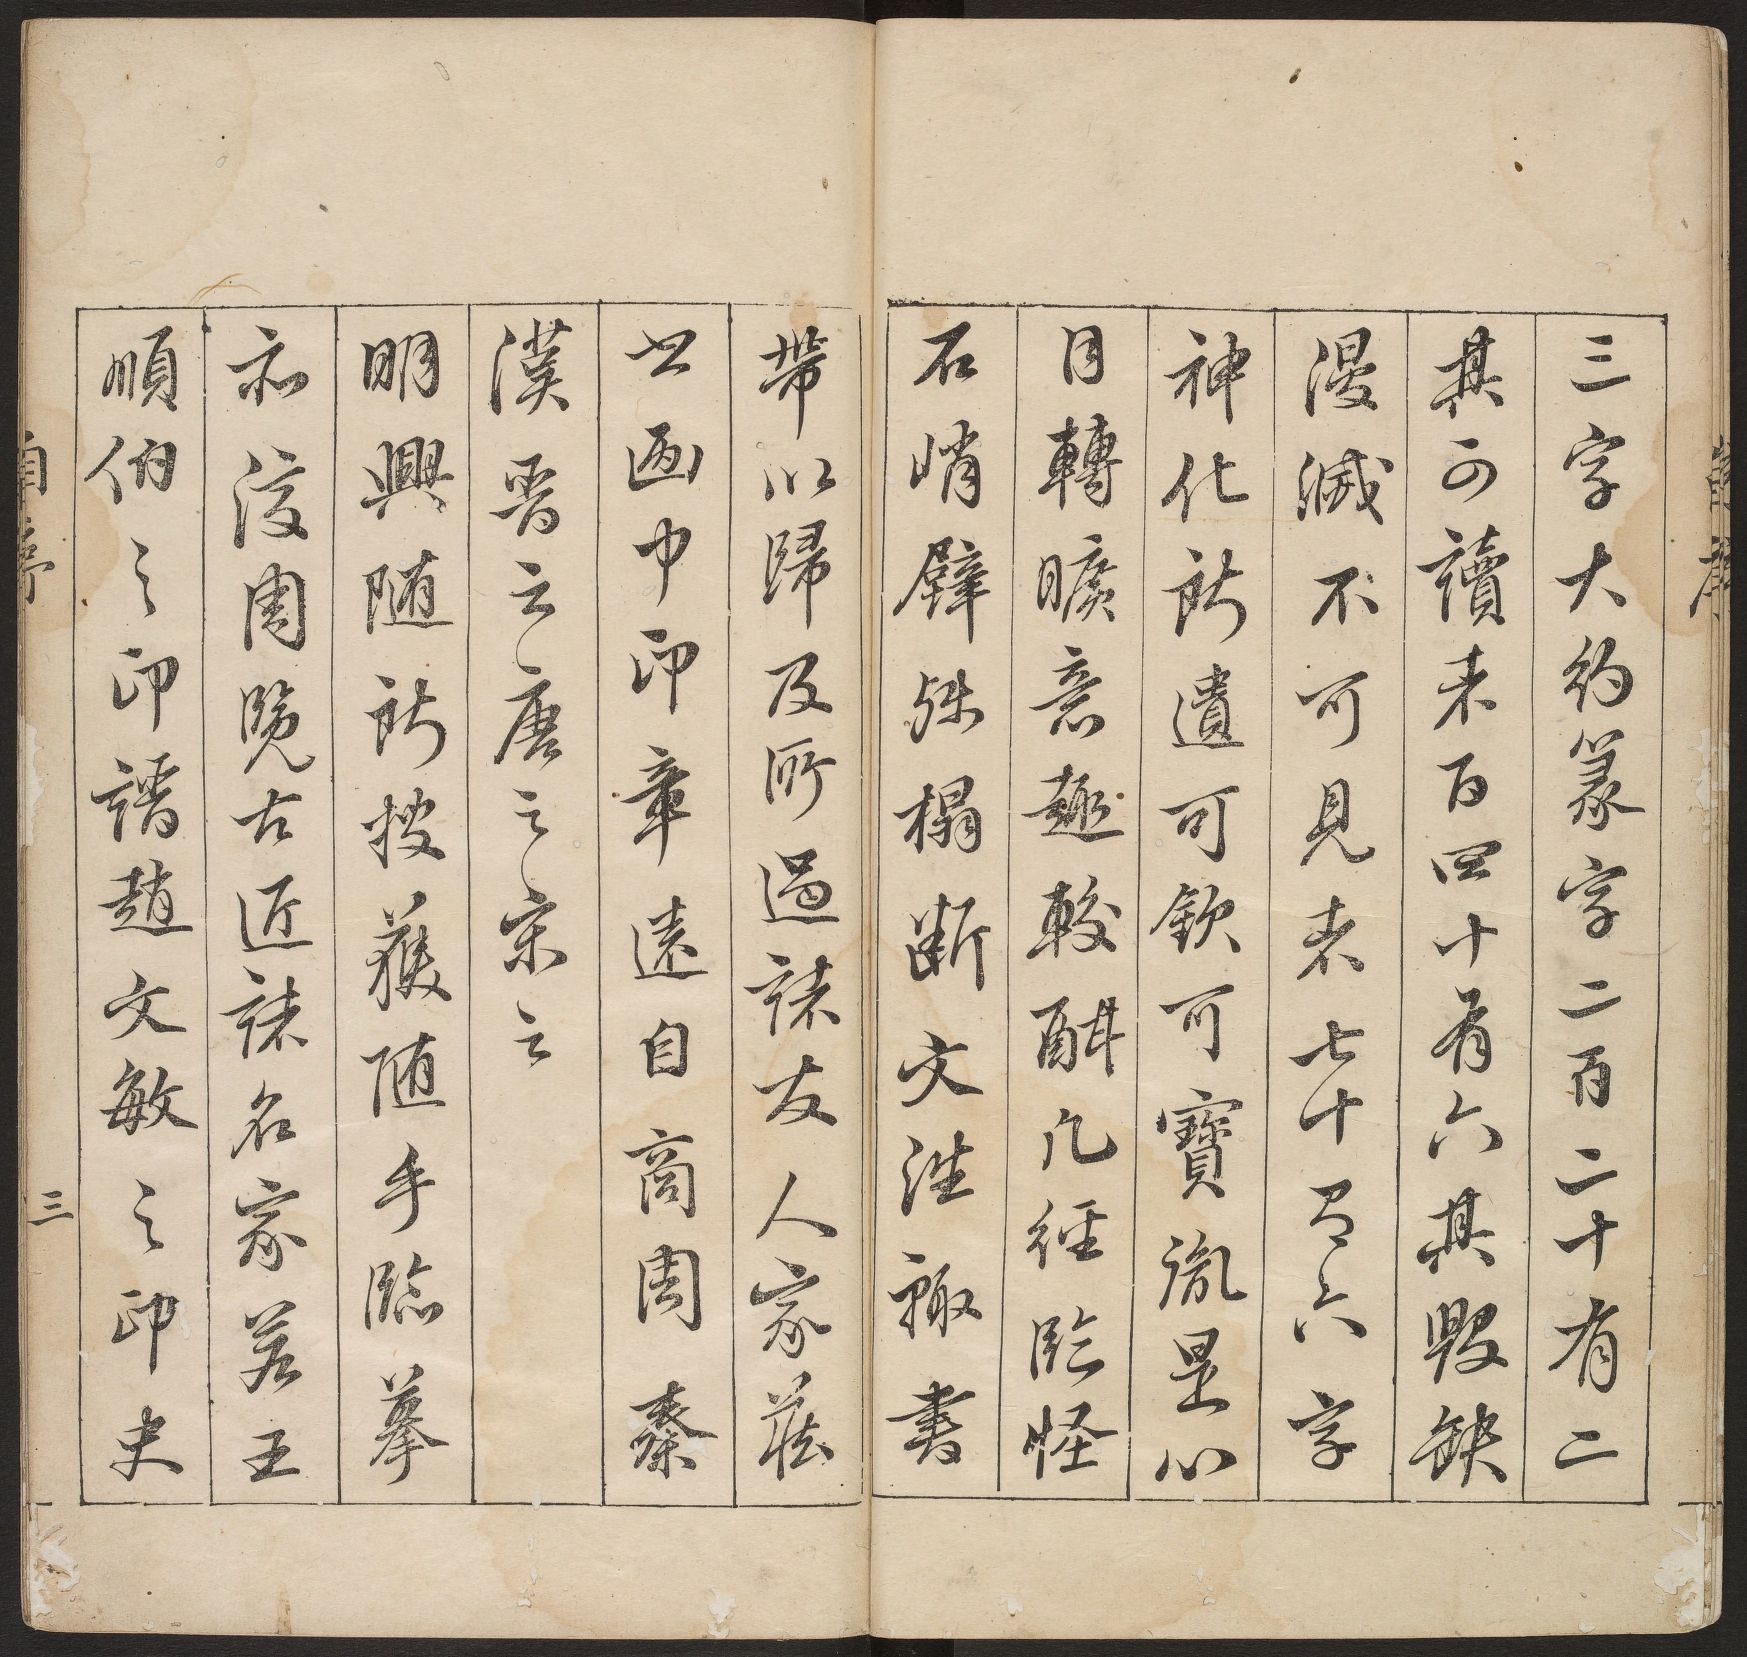 三字大約篆字二百二十有二
其可讀者百四十有六其毀缺
漫滅不可見者七十有六字
神化所遺可欽可寶胤是心
目轉曠意趣較酣凡經臨怪
石峭壁殊榻斷文注輙書
帶以歸及所過諸友人家蔵
古画中印章遠自商周秦
漢晉云唐之宋云
明興随所搜獲随手臨摹
示 周覽古近諸名家若王
順伯之印譜趙文敏之印史
自序
三